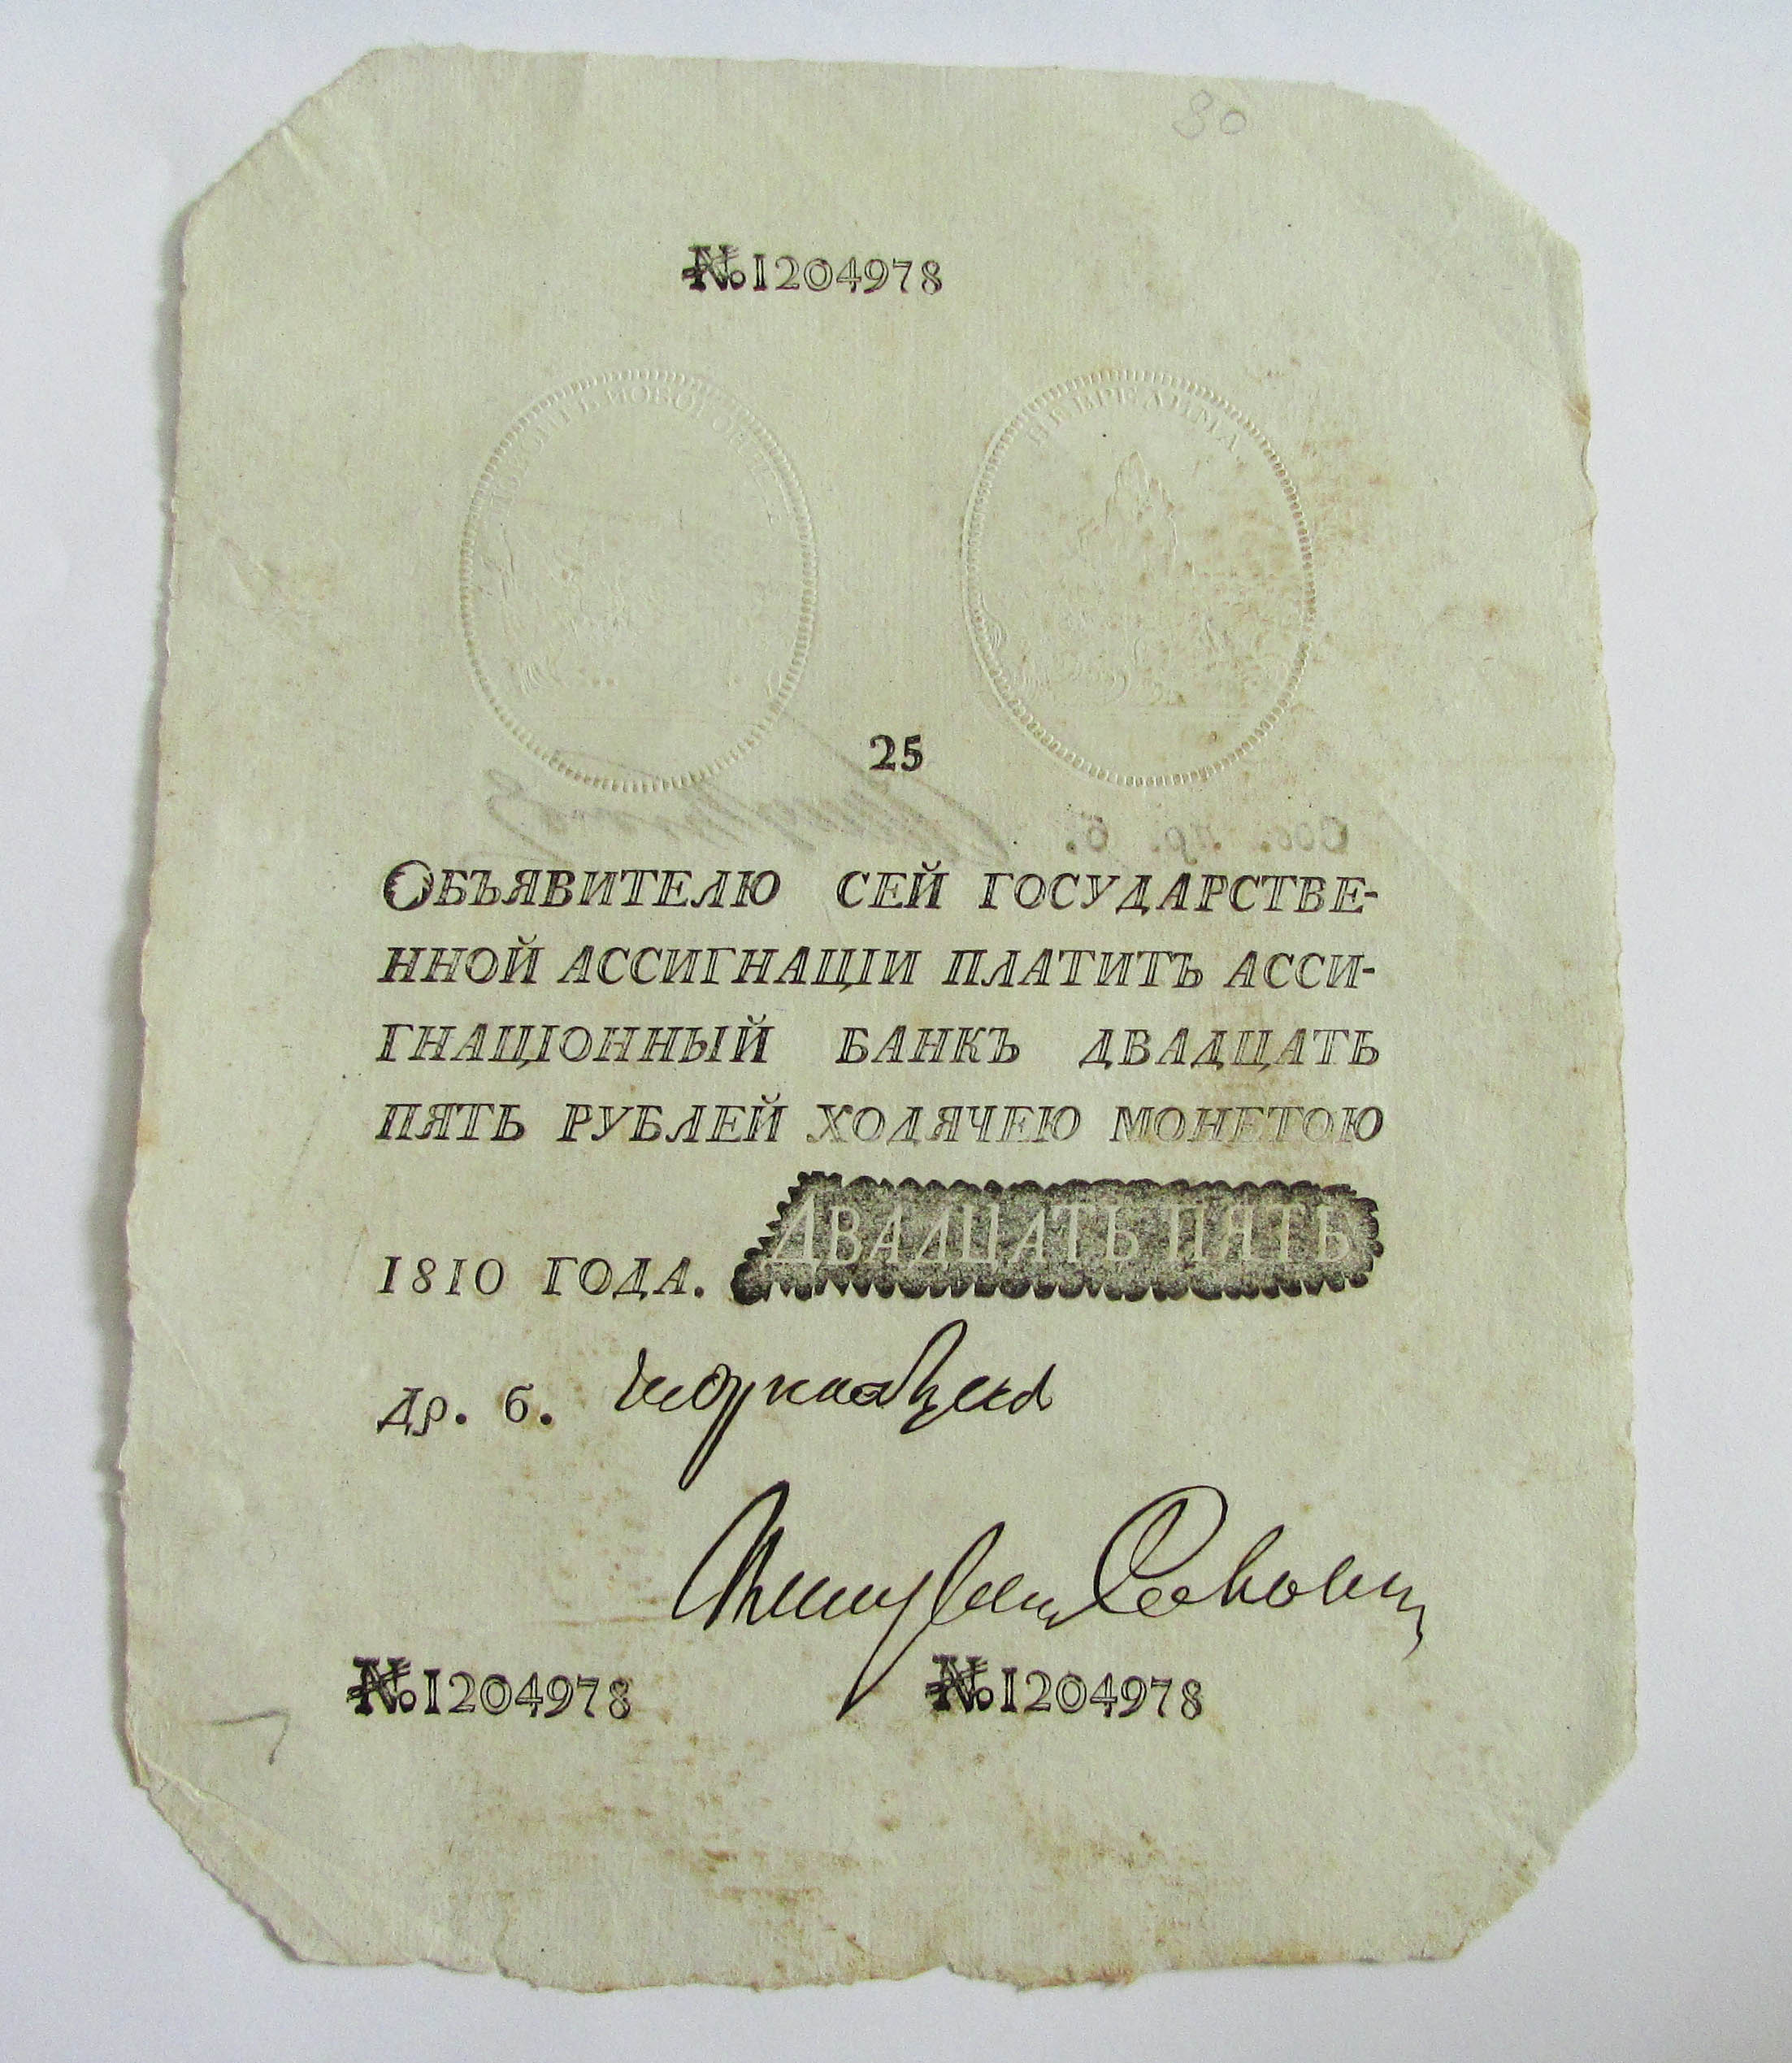 80
№1204978
ПОКОИТЪ И ОБОРОНЯЕТЪ
НЕВРЕДИМА.
25
Соб. пр. б.
ОБЪЯВИТЕЛЮ СЕЙ ГОСУДАРСТВЕ-
ННОЙ АССИГНАЦIИ ПЛАТИТЪ АССИ-
ГНАЦIОННЫЙ БАНКЪ ДВАДЦАТЬ
ПЯТЬ РУБЛЕЙ ХОДЯЧЕЮ МОНЕТОЮ
1810 ГОДА. ДВАДЦАТЬ ПЯТЬ
др. б.
№1204978 №1204978